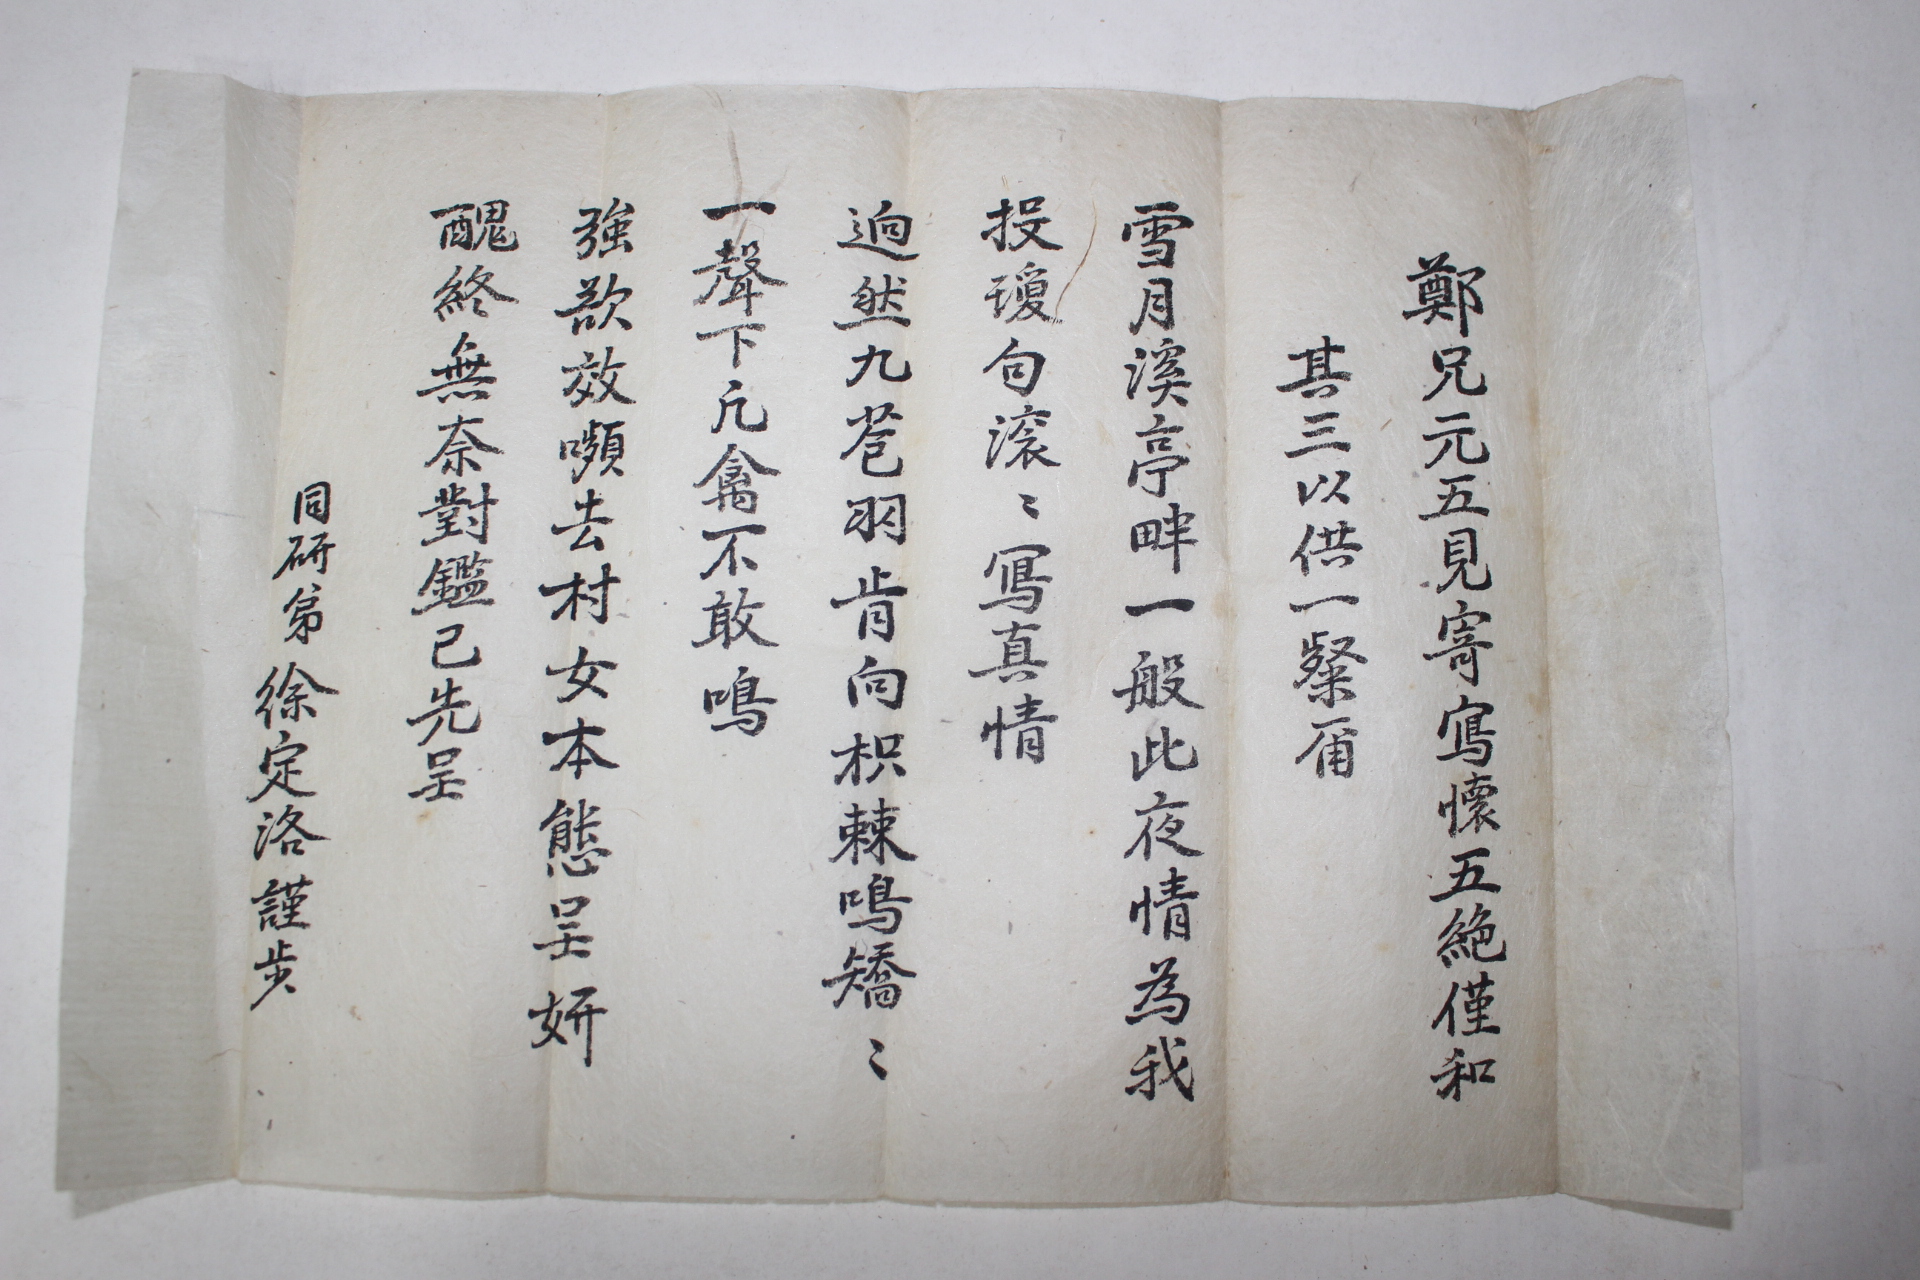 鄭兄元五見寄寫懷五絶僅和
其三以供一粲爾
雪月溪亭畔一般此夜情為我
投瓊句滚〻寫真情
逈然九苞羽肯向枳棘鳴矯〻
一聲下凡禽不敢鳴
強欲效嚬去村女本態呈妍
醜終無奈對鑑已先呈
同研弟徐定洛謹步